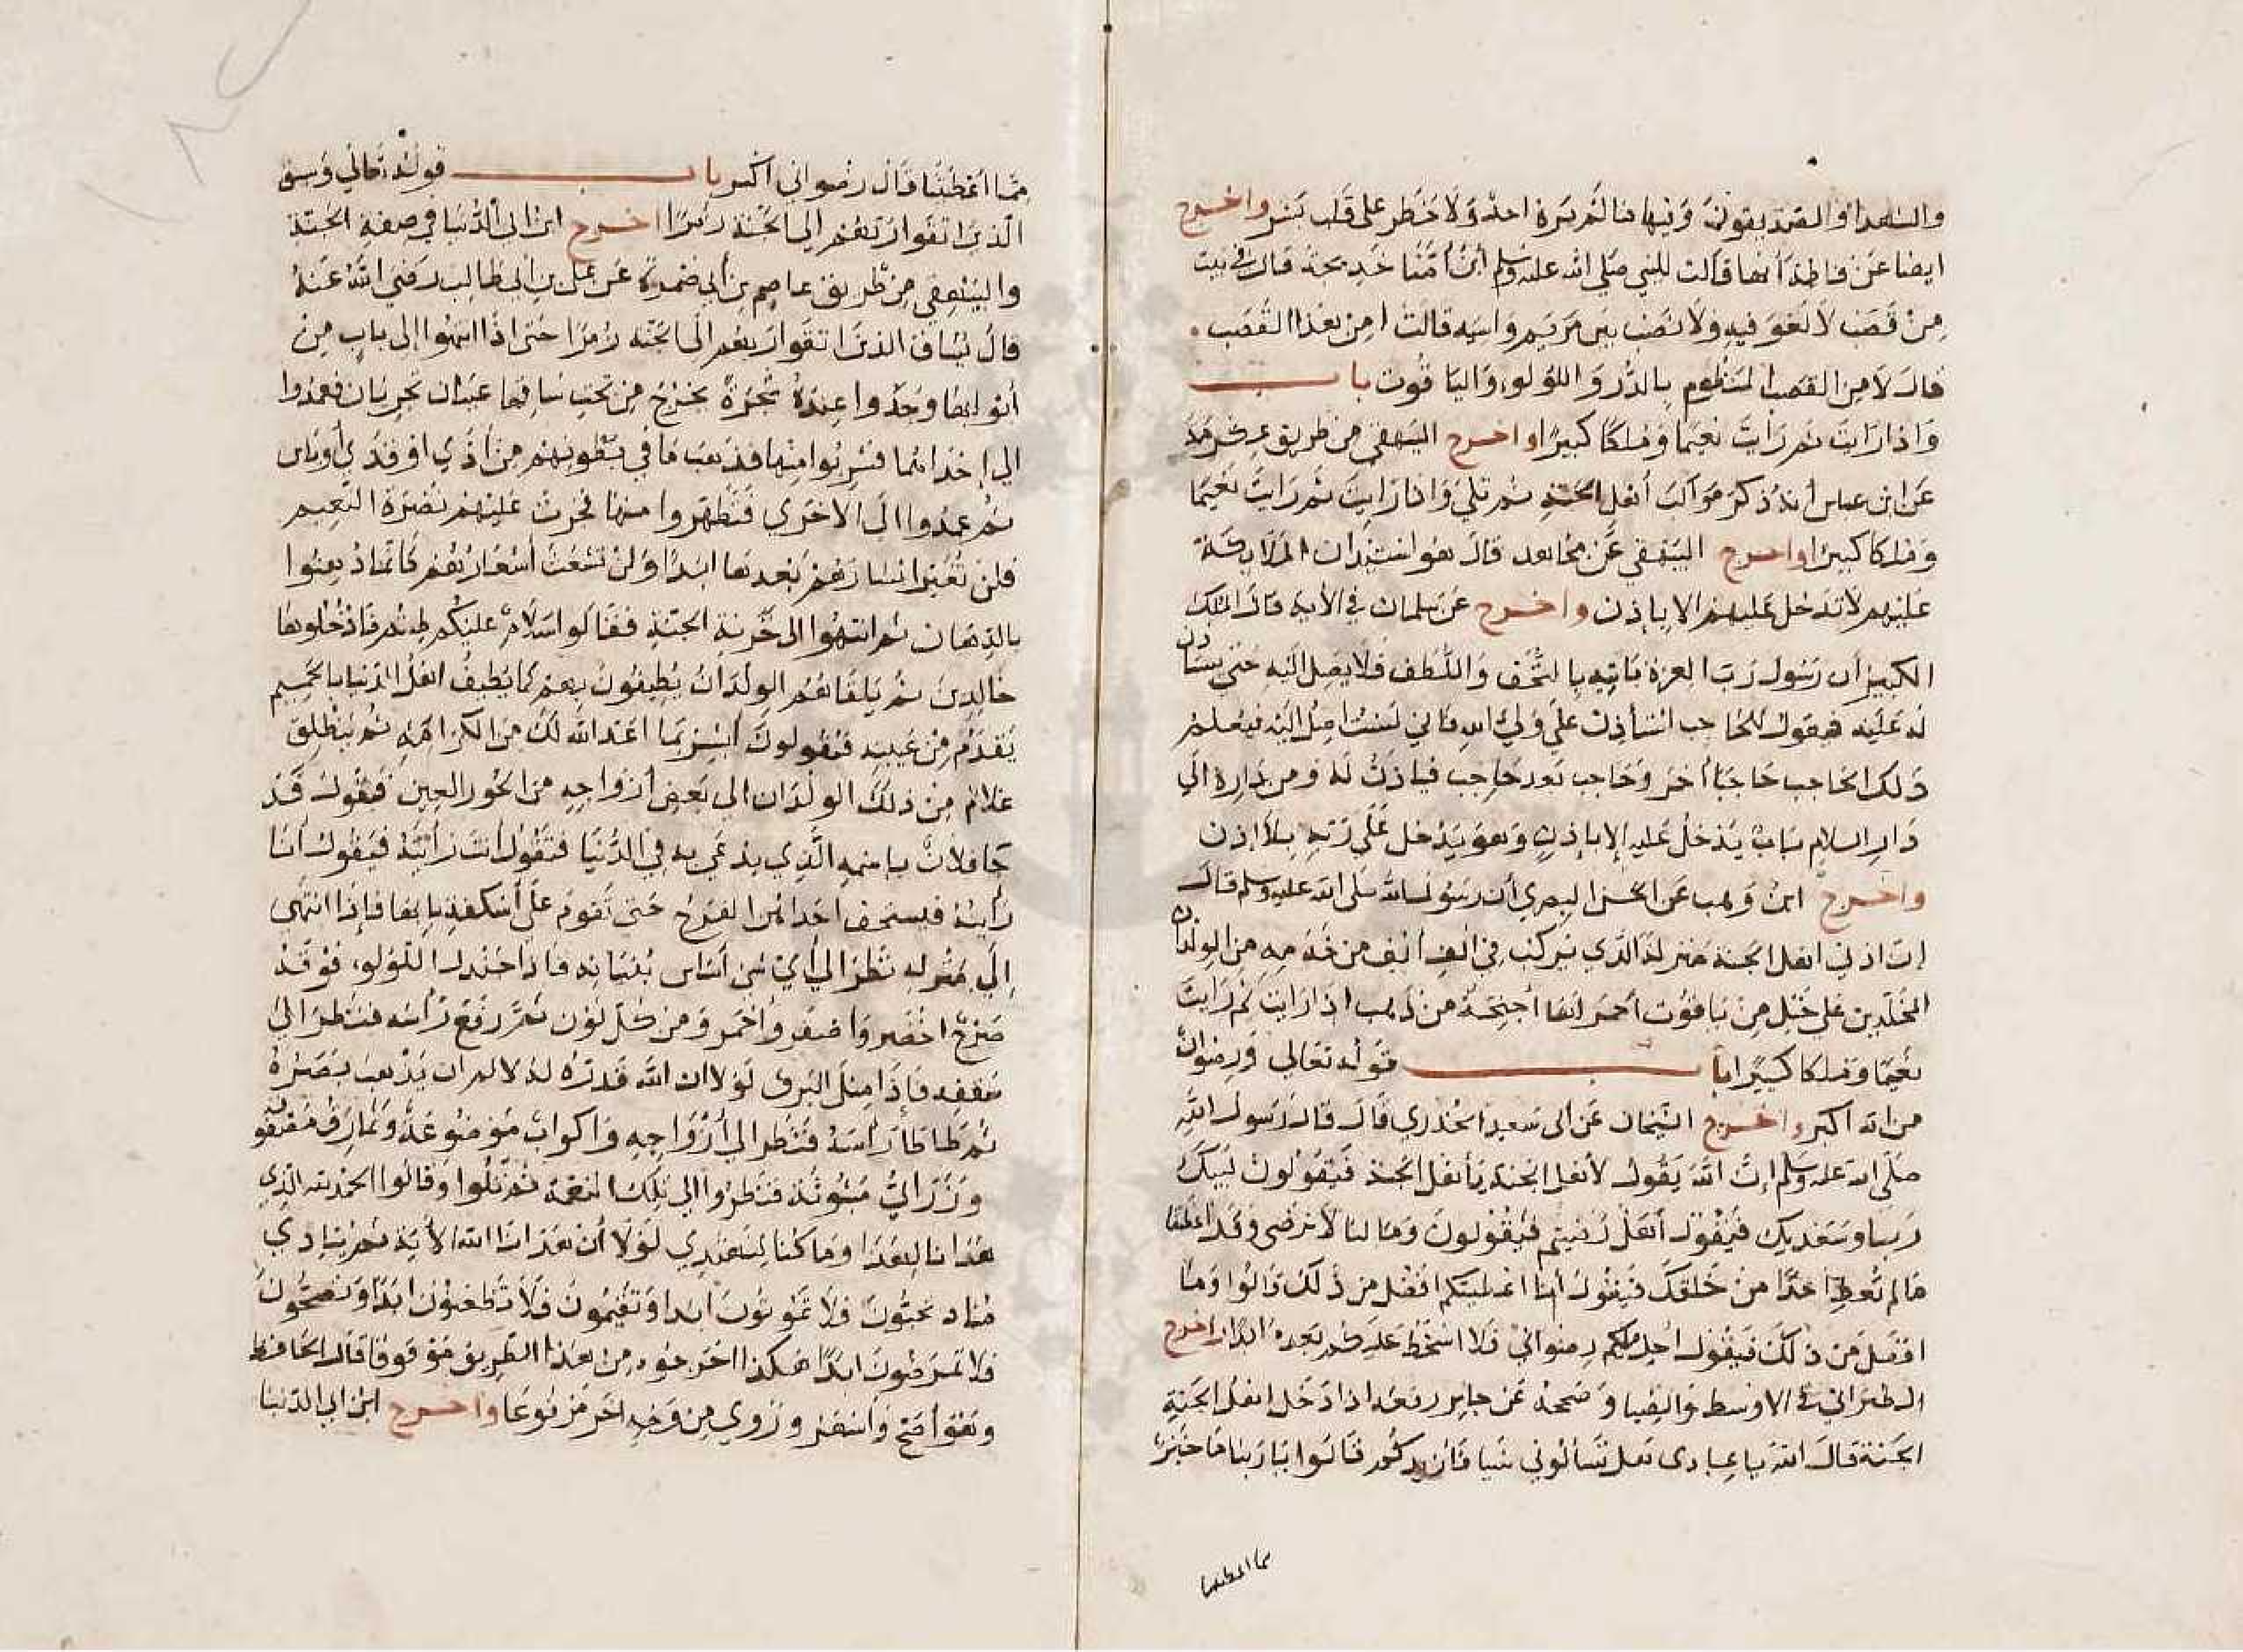 والشهداء والصديقون وفيها ما لم يره احد ولا خطر على قلب بشر واخرج
ايضا عن فاطمة أنها قالت للنبي صلى الله عليه وسلم أين أمنا خديجة قال في بيت
من قصب لا لغو فيه ولا نصب بين مريم واسيه قالت أمن هذا القصب
قال لا من القصب المنظوم بالدر واللولو والياقوت باب
واذا رايت ثم رايت نعيما وملكا كبيرا واخرج البيهقى من طريق عكرمة
عن ابن عباس أنه ذكر مراكب أهل الجنة ثم تلى واذا رايت ثم رايت نعيما
وملكا كبيرا واخرج البيهقي عن مجاهد قال هو استيذان الملايكة
عليهم لا تدخل عليهم الا بإذن واخرج عن سلمان في الأية قال الملك
الكبير أن رسول رب العزة يأتيه بالتحف واللطف فلا يصل اليه حتى يستأذن
له عليه فيقول للحاجب استأذن على ولي الله فاني لست اصل اليه فيعلم
ذلك الحاجب حاجبا أخر وحاجب بعد حاجب فياذن له ومن داره الى
دار السلام باب يدخل عليه إلا بإذن وهو يدخل على ربه بلا إذن
واخرج ابن وهب عن الحسن البصري أن رسول الله صلى الله عليه وسلم قال
إن ادنى اهل الجنة منزلة الذي يركب في الف ألف من خدمه من الولدان
المخلدين على خيل من ياقوت أحمر لها أجنحة من ذهب اذا رايت ثم رايت
نعيما وملكا كبيرا باب قوله تعالى ورضوان
من الله أكبر واخرج الشيخان عن ابى سعيد الخدري قال قال رسول الله
صلى الله عليه وسلم إن الله يقول لأهل الجنة يا أهل الجنة فيقولون لبيك
ربنا وسعديك فيقول أهل رضيتم فيقولون وما لنا لا نرضى وقد أعطيتنا
ما لم تعط احدا من خلقك فيقول أنا اعطيتكم افضل من ذلك قالوا وما
افضل من ذلك فيقول احل عليكم رضواني فلا اسخط عليكم بعده ابدا واخرج
الطبراني في الاوسط والضيا وصححه عن جابر رفعه اذا دخل اهل الجنة
الجنة قال الله يا عبادى هل تسألوني شيا فأزيدكم قالوا يا ربنا ما خير
مما اعطيتنا
مما اعطيتنا قال رضواني اكبر باب قوله تعالي وسيق
الذين اتقوا ربهم إلى الجنة زمرا اخرج ابن ابى الدنيا في صفة الجنة
والبيهقي من طريق عاصم بن أبي ضمرة عن على بن ابى طالب رضي الله عنه
قال يساق الذين اتقوا ربهم الى الجنة زمرا حتى اذا انتهوا إلى باب من
أبوابها وجدوا عنده شجرة يخرج من تحت ساقها عينان تجريان فعمدوا
الي إحداهما فشربوا منها فذهب ما في بطونهم من أذي او قذي أو باس
ثم عمدوا الى الاخرى فتطهروا منها فجرت عليهم نضرة النعيم
فلن تغير ابشارهم بعدها ابدا ولن تشعث أشعارهم كأنما دهنوا
بالدهان ثم انتهوا الى خزنة الجنة فقالوا سلام عليكم طبتم فادخلوها
خالدين ثم يلقاهم الولدان يطيفون بهم كما يطيف اهل الدنيا بالحميم
يقدم من غيبه فيقولون أبشر بما اعد الله لك من الكرامة ثم ينطلق
غلام من ذلك الولدان الى بعض أزواجه من الحور العين فيقول قد
جا فلان باسمه الذي يدعى به في الدنيا فتقول أنت رأيته فيقول أنا
رأيته فيستخف احداهن الفرح حتى تقوم على أسكفة بابها فإذا انتهى
إلى منزله نظر الي أي شي أساس بنيانه فاذا جندل اللولو فوقه
صرح اخضر واصفر واحمر ومن كل لون ثم رفع رأسه فنظر الى
سقفه فإذا مثل البرق لولا ان الله قدره له لالم ان يذهب بصره
ثم طأطأ رأسه فنظر الي أزواجه واكواب موضوعة ونمارق مصفوفة
وزرابى مبثوثة فنظروا الى تلك النعمة ثم تلوا وقالوا الحمد لله الذي
هدانا لهذا وما كنا لنهتدي لولا أن هدانا الله الأية ثم ينادي
مناد تحيون فلا تموتون أبدا وتقيمون فلا تظعنون ابدا وتصحون
فلا تمرضون ابدا هكذا اخرجوه من هذا الطريق موقوفا قال الحافظ
وهو أصح وأشهر وروي من وجه أخر مرفوعا واخرج ابن ابي الدنيا